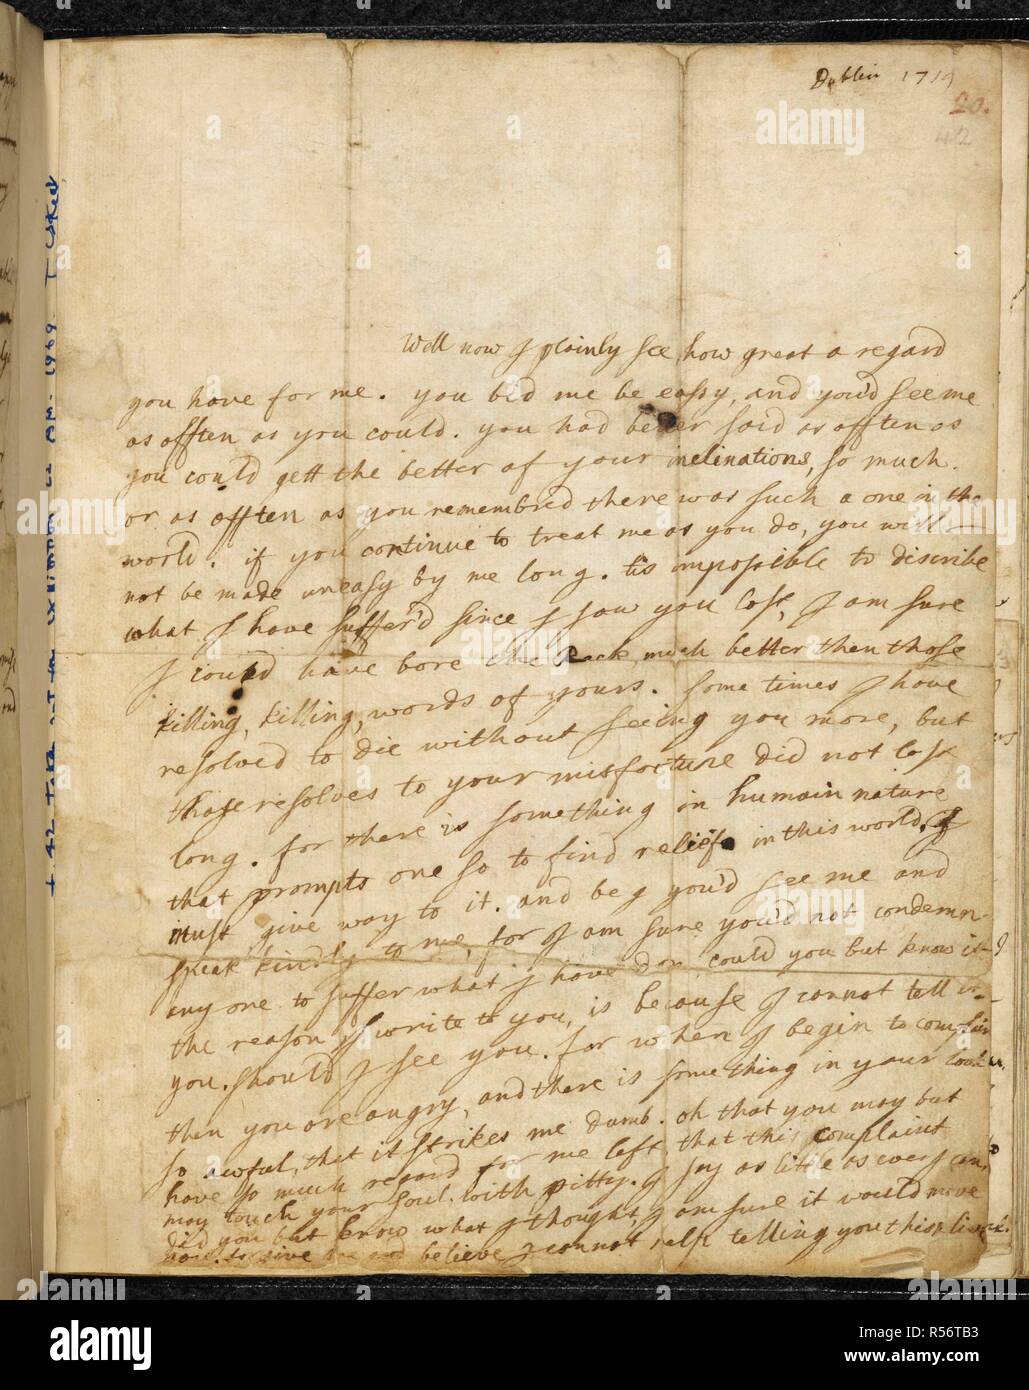 Dublin 1714
20.
42
Well now I plainly see how great a regard
you have for me. you bid me be eassy, and you'd see me
as offten as you could. you had better said as offten as
you could gett the better of your inclinations, so much.
or as offten as you remembred there was such a one in the
world. if you continue to treat me as you do, you will
not be made uneasy by me long. tis impossible to discribe
what I have suffer'd since I saw you last, I am sure
I could have bore the Rack much better then those
killing, killing, words of yours. some times I have
resolved to die without seeing you more, but
those resolves to your misfortune did not last
long. for there is something in humain nature
that prompts one so to find relief in this world, I
must give way to it. and beg you'd see me and
speak kindly to me, for I am sure you'd not condemn
any one to suffer what I have don could you but know it
the reason I write to you, is because I cannot tell it
you. should I see you. for when I begin to complain
then you are angry, and there is something in your look
so awful, that it strikes me dumb. oh that you may but
have so much regard for me left that this complaint
may touch your soul with pitty. I say as little as ever I can,
did you but know what I thought, I am sure it would move
you. forgive me and believe I cannot help telling you this & live
alamy
Image ID: R56TB3
www.alamy.com